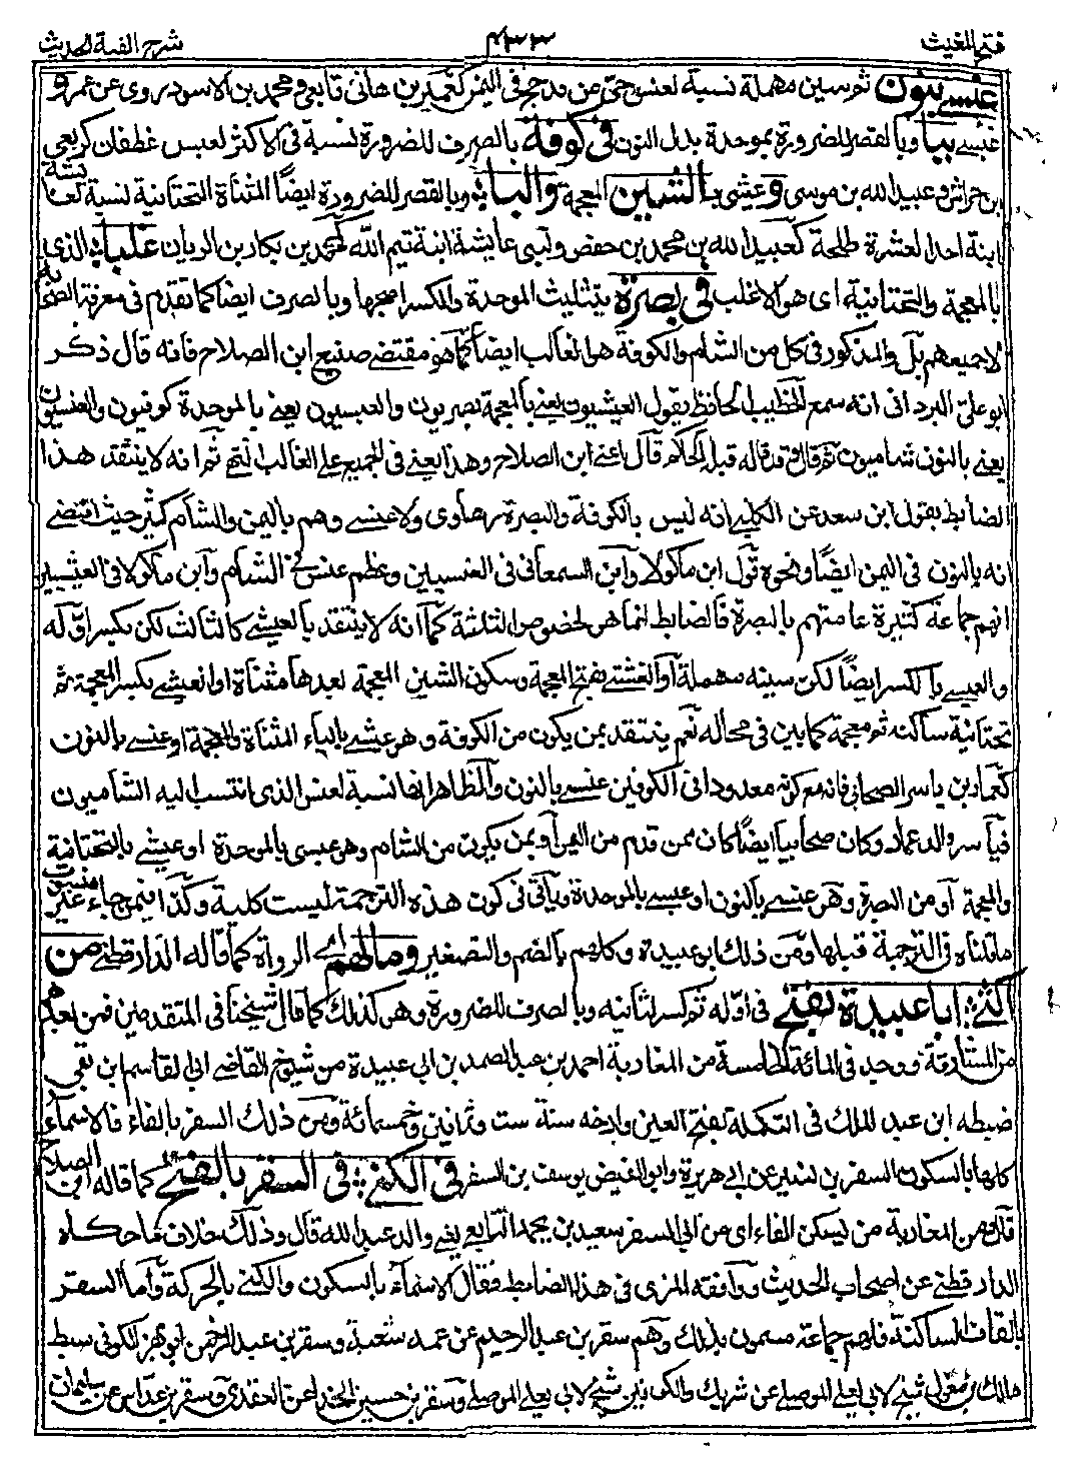 فتح المغيث
٤٣٣
شرح الفية الحديث
عنسي بنون ثم سين مهملة نسبة لعنس حي من مذحج في اليمن كعمير بن هانئ تابعي ومحمد بن الاسود روى عن عمر و
عبسي بيا وبالقصر للضرورة بموحدة بدل النون في كوفة بالصرف للضرورة نسبة في الاكثر لعبس غطفان كربعي
بن حراش وعبيد الله بن موسى وعيشي بالشين المعجمة والياء وبالقصر للضرورة ايضًا المثناة التحتانية نسبة لعائشة
ابنة احد العشرة طلحة كعبيد الله بن محمد بن حفص ولبني عايشة ابنة تيم الله كمحمد بن بكار بن الريان غلبا الذي
بالمعجمة والتحتانية اى هو الاغلب في بصرة بتثليث الموحدة والكسر اصحها وبالصرف ايضا كما تقدم في معرفة الصحابة
لا جميعهم بل والمذكور في كل من الشام والكوفة هو الغالب ايضا كما هو مقتضى صنيع ابن الصلاح فانه قال ذكر
ابو علي البرداني انه سمع الخطيب الحافظ يقول العيشيون يعني بالمعجمة بصريون والعبسيون يعني بالموحدة كوفيون والعنسيون
يعني بالنون شاميون ثم قال وقد قاله قبله الحاكم قال اعني ابن الصلاح وهذا يعني في الجميع على الغالب انتهى ثم انه لا ينتقد هذا
الضابط بقول ابن سعد عن الكلبي انه ليس بالكوفة والبصرة رهاوى ولا عنسي وهم باليمن والشام كثير حيث اقتضى
انه بالنون في اليمن ايضًا ونحوه قول ابن ماكولا وابن السمعاني في العنسيين وعظم عنس في الشام وابن ماكولا في العيشيين
انهم جماعة كثيرة عامتهم بالبصرة فالضابط انما هو لخصوص الثلثة كما انه لا ينتقد بالعيشي كالثالث لكن بكسر اوله
والعيسي بالكسر ايضًا لكن سينه مهملة او الغشتي بفتح المعجمة وسكون الشين المعجمة بعدها مثناة او الغيشي بكسر المعجمة ثم
تحتانية ساكنة ثم معجمة كما بين في محاله نعم ينتقد بمن يكون من الكوفة وهو عيشي بالياء المثناة والمعجمة او عنسي بالنون
كعمار بن ياسر الصحابي فانه مع كونه معدودا في الكوفيين عنسي بالنون والظاهر انها نسبة لعنس الذى انتسب اليه الشاميون
فياسر والد عمار وكان صحابيا ايضًا كان ممن قدم من اليمن او بمن يكون من الشام وهو عبسي بالموحدة او عيشي بالتحتانية
والمعجمة او من البصرة وهو عنسي بالنون او عبسي بالموحدة ويأتي في كون هذه الترجمة ليست كلية وكذا فيمن جاء غير منسوب
ما قلناه في الترجمة قبلها ومن ذلك ابو عبيدة وكلهم بالضم والتصغير ومالهم اى الرواة كما قاله الدارقطني من
اكنى ابا عبيدة بفتح في اوله ثم كسر لثانيه وبالصرف للضرورة وهو كذلك كما قال شيخنا في المتقدمين فمن بعدهم
من المشارقة ووجد في المائة الخامسة من المغاربة احمد بن عبد الصمد بن ابي عبيدة من شيوخ القاضي ابي القاسم ابن بقي
ضبطه ابن عبد الملك في التكملة بفتح العين وارخه سنة ست وثمانين وخمسمائة ومن ذلك السفر بالفاء فالاسماء
كلها بالسكون السفر بن نسير عن ابي هريرة وابو الفيض يوسف بن السفر في الكنى في السفر بالفتح كما قاله ابن الصلاح
قال ومن المغاربة من يسكن الفاء اى من ابي السفر سعيد بن يحمد التابعي يعني والد عبد الله قال وذلك خلاف ما حكاه
الدارقطني عن اصحاب الحديث ووافقه المزى في هذا الضابط فقال الاسماء بالسكون والكنى بالحركة واما السقر
بالقاف الساكنة فلهم جماعة مسمون بذلك وهم سقر بن عبد الرحيم عن عمه شعبة وسقر بن عبد الرحمن ابو بهز الكوفي سبط
مالك بن مغول شيخ لابي يعلى الموصلي عن شريك شيخ لابي يعلى الموصلي وسقر بن حسين الحذاء عن العقدي وسقر بن عداس عن سليمان